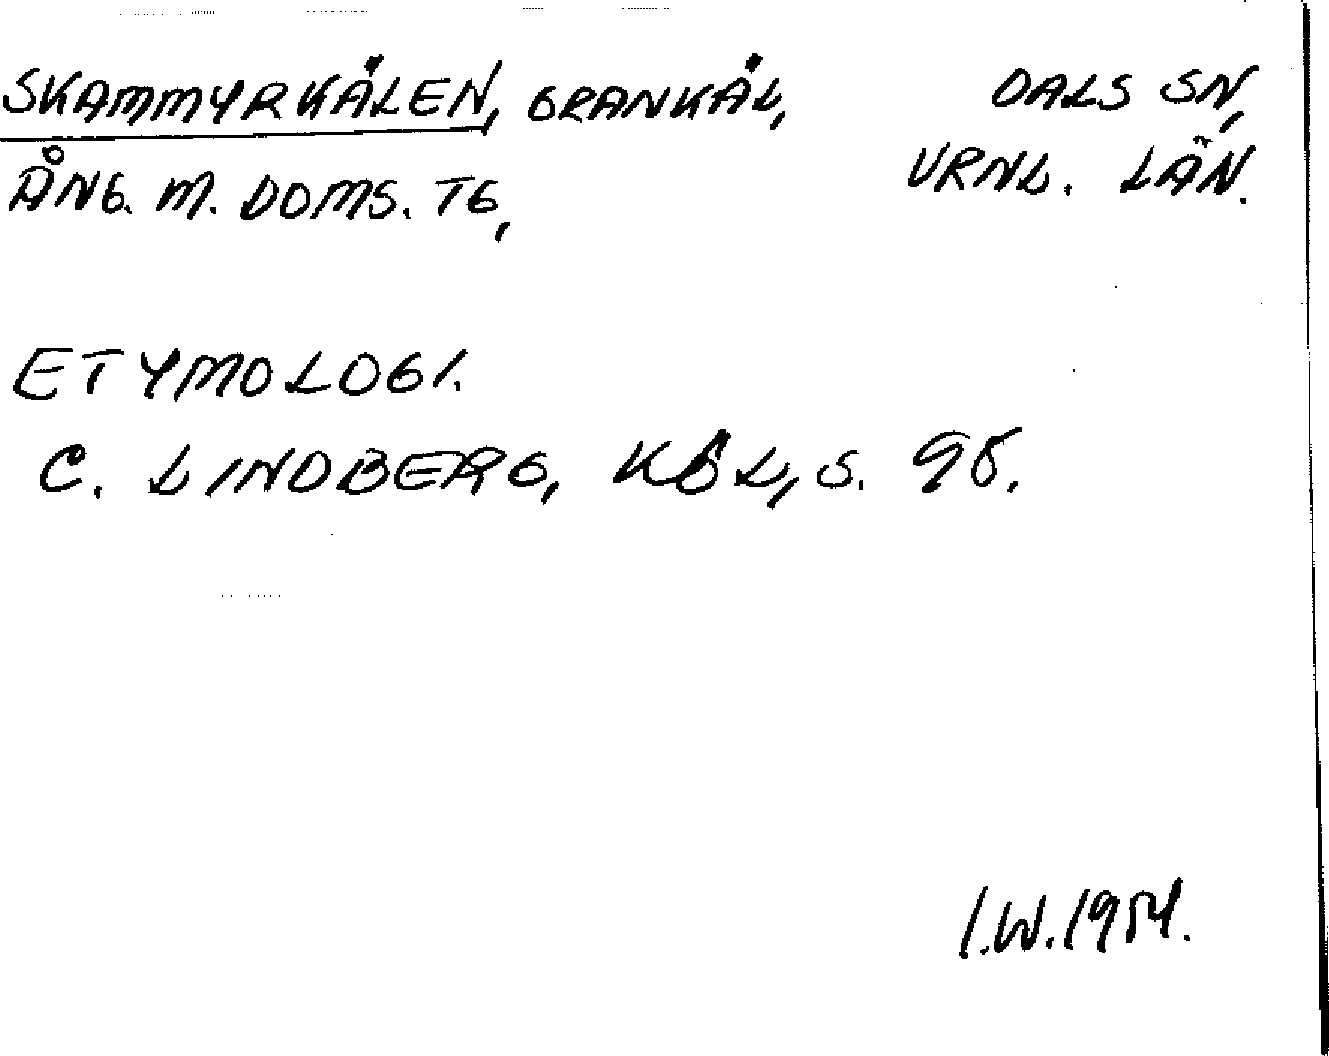 SKAMMYRKÅLEN, GRANKÅL, DALS SN,
ÅNG. M. DOMS. TG, VRNL. LÄN.
ETYMOLOGI.
C. LINDBERG, KBL, S. 98.
I.W. 1954.